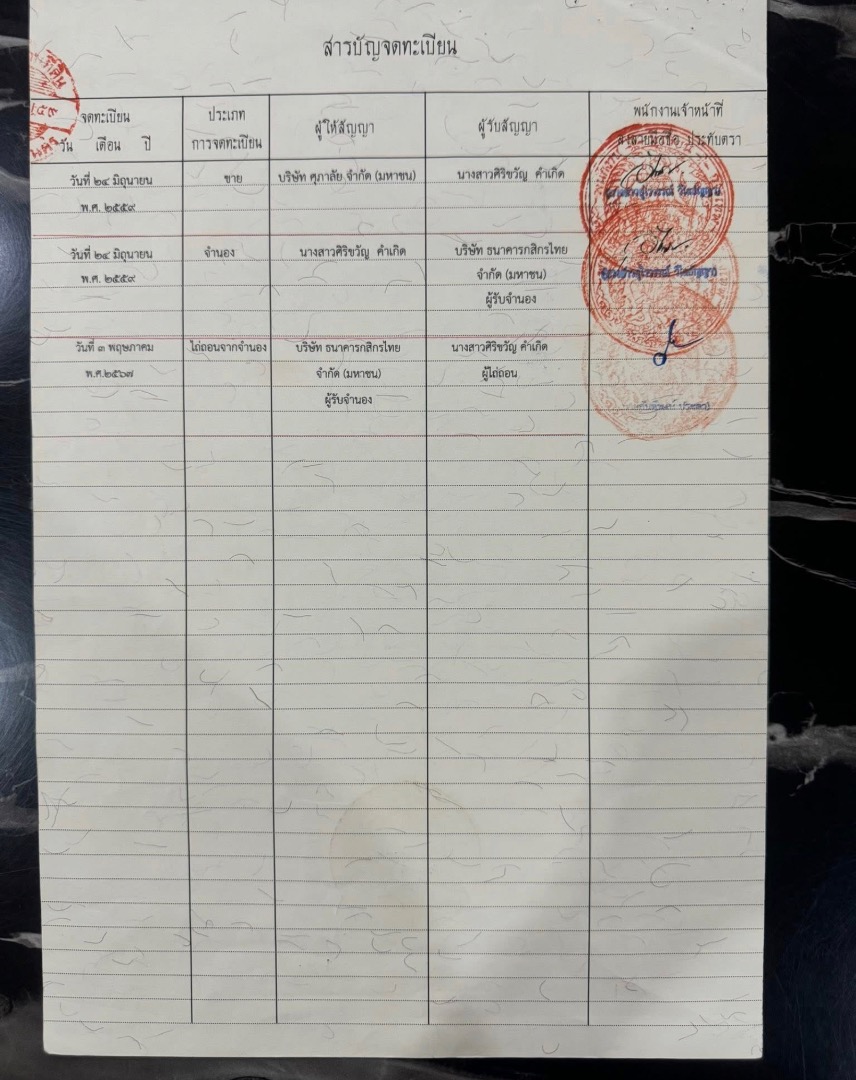 สารบัญจดทะเบียน
จดทะเบียน
วัน เดือน ปี
ประเภท
การจดทะเบียน
ผู้ให้สัญญา
ผู้รับสัญญา
พนักงานเจ้าหน้าที่
ลงลายมือชื่อ ประทับตรา
วันที่ ๒๔ มิถุนายน
พ.ศ. ๒๕๕๙
ขาย
บริษัท ศุภาลัย จำกัด (มหาชน)
นางสาวศิริขวัญ คำเกิด
วันที่ ๒๔ มิถุนายน
พ.ศ. ๒๕๕๙
จำนอง
นางสาวศิริขวัญ คำเกิด
บริษัท ธนาคารกสิกรไทย
จำกัด (มหาชน)
ผู้รับจำนอง
วันที่ ๓ พฤษภาคม
พ.ศ.๒๕๖๗
ไถ่ถอนจากจำนอง
บริษัท ธนาคารกสิกรไทย
จำกัด (มหาชน)
ผู้รับจำนอง
นางสาวศิริขวัญ คำเกิด
ผู้ไถ่ถอน